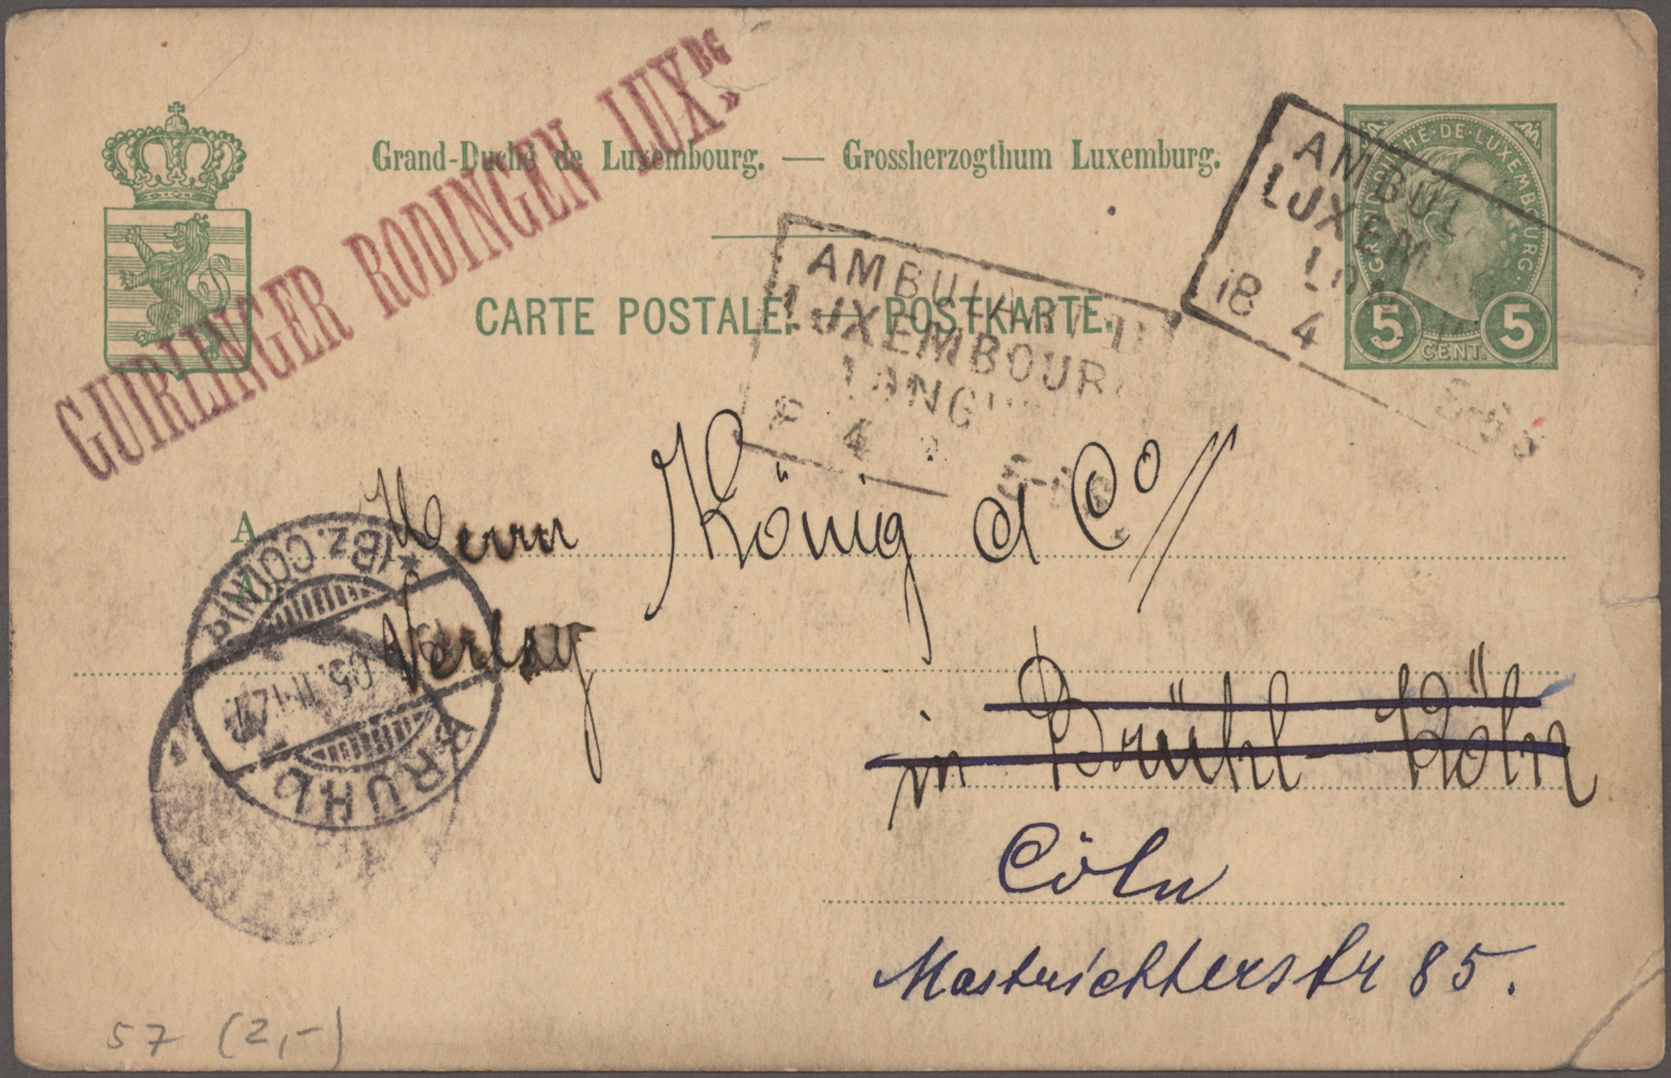 GUIRLINGER RODINGEN LUXBG
Grand-Duché de Luxembourg. — Grossherzogthum Luxemburg.
CARTE POSTALE. — POSTKARTE.
GRAND-DUCHÉ·DE·LUXEMBOURG
5 CENT. 5
AMBUL
LUXEM
18 4
AMBULANT
LUXEMBOURG
LANG
4
A
Herrn König & Co//
Verlag
in Brühl-Köln
Cöln
Mastrichterstr 85.
*(BZ. CÖLN)
05.11-12
BRÜHL
57 (2,-)